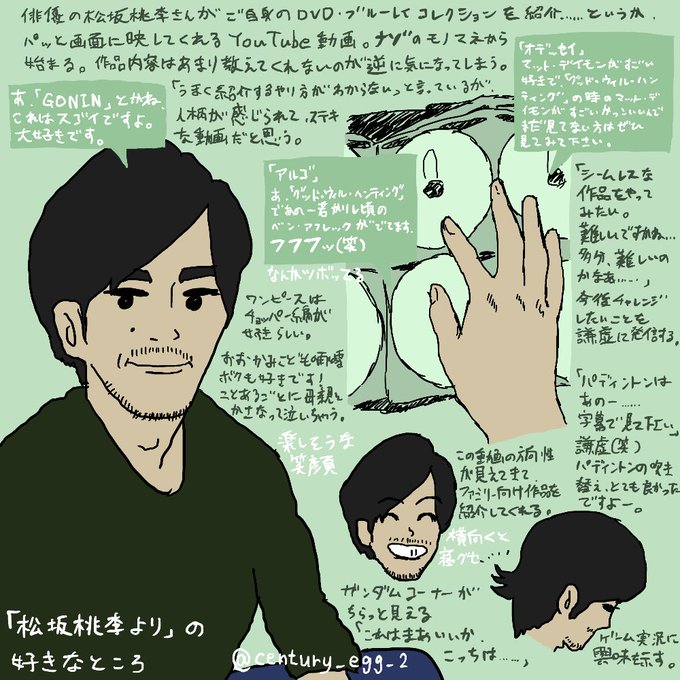 俳優の松坂桃李さんがご自身のDVD・ブルーレイコレクションを紹介……というか、
パッと画面に映してくれるYouTube動画。ナゾのモノマネから
始まる。作品内容はあまり教えてくれないのが逆に気になってしまう。
「うまく紹介するやり方がわからないっと言っているが、
人柄が感じられて、ステキ
な動画だと思う。
あ、「GONIN」とかね、
これはスゴイですよ。
大好きです。
「オデッセイ」
マット・デイモンがすごい
好きで、「グッド・ウィル・ハン
ティング」の時のマット・デ
イモンがすごいかっこいいんで
まだ見てない方はぜひ
見てみて下さい。
「アルゴ」
あ、「グッド・ウィル・ハンティング」
であの一若かりし頃の
ベン・アフレックがでてます。
フフフッ(笑)
なんかツボってる
「シームレスな
作品をやって
みたい。
難しいですかね…
多分、難しいの
かなぁ……」
今後チャレンジ
したいことを
謙虚に発信する。
ワンピースは
チョッパー編が
好きらしい。
おおかみこどもの雨と雪
ボクも好きです!
ことあるごとに母親と
かさなって泣いちゃう。
楽しそうな
笑顔
「パディントンは
あの一……
字幕で見て下さい」
謙虚(笑)
パディントンの吹き
替え、とても良かった
ですよー。
この動画の方向性
が見えてきて
ファミリー向け作品を
紹介してくれる。
横向くと
寝グセ……
ガンダムコーナーが
ちらっと見える
「これはまあいいか、
こっちは……」
ゲーム実況に
興味を示す。
「松坂桃李より」の
好きなところ
@century_egg_2